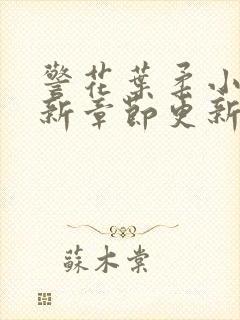 警花葉柔小
新章節更新
蘇木棠